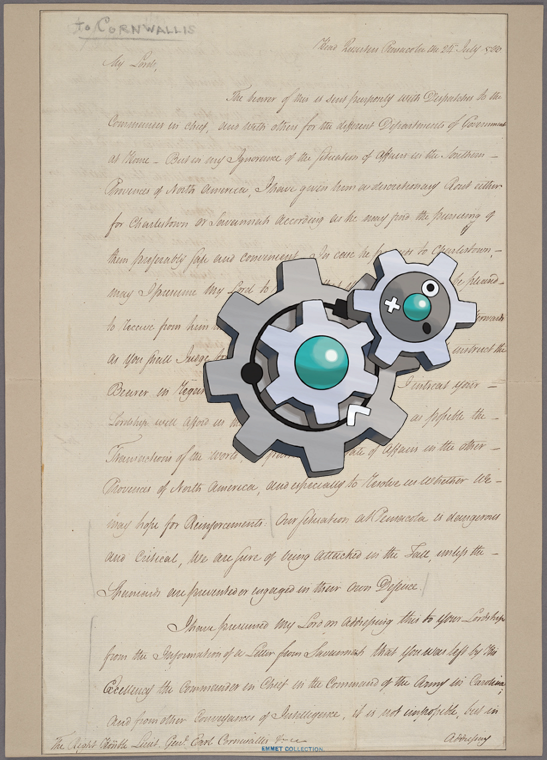 to CORNWALLIS
Head Quarters Pensacola the 24 July 1780
My Lord,
The bearer of this is sent purposely with Dispatches to the
Commander in chief, and with others for the different Departments of Government
at Home - But in my Ignorance of the Situation of Affairs in the Southern -
Provinces of North America, I have given him a discretionary Rout either
for Charlestown or Savannah according as he may find the pursuing of
them preferably safe and convenient. In case he to Charlestown, -
may I presume my Lord to be pleased -
to receive from him
as you shall Judge instruct the
Bearer in I intreat your -
Lordship will afford as possible the -
Transactions of the World of Affairs in the other -
Provinces of North America, and especially to resolve us Whether We -
may hope for Reinforcements Our Situation at Pensacola is dangerous
and Critical, We are sure of being attacked in the Fall, unless the -
Spaniards are prevented or engaged in their own Defence.
I have presumed my Lord on addressing this to Your Lordship
from the Information of a Letter from Savannah that You was left by His
Excellency the Commander in Chief in the Command of the Army in Carolina;
and from other Conveyances of Intelligence, it is not impossible, but in
The Right Honble Lieut. Genl. Earl Cornwallis
Addressing
EMMET COLLECTION